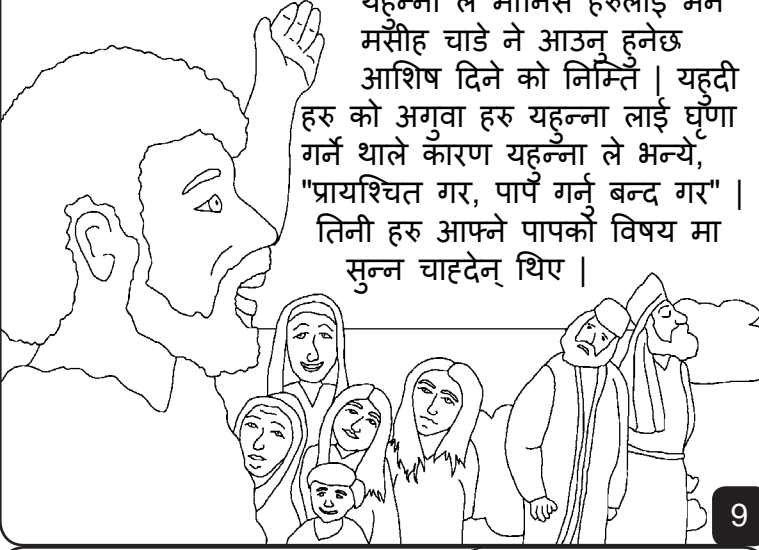 यहुन्ना ले मानिस हरुलाई भने
मसीह चाडे ने आउनु हुनेछ
आशिष दिने को निम्ति | यहुदी
हरु को अगुवा हरु यहुन्ना लाई घृणा
गर्ने थाले कारण यहुन्ना ले भन्ये,
"प्रायश्चित गर, पाप गर्नु बन्द गर" |
तिनी हरु आफ्ने पापको विषय मा
सुन्न चाह्देन् थिए |
9